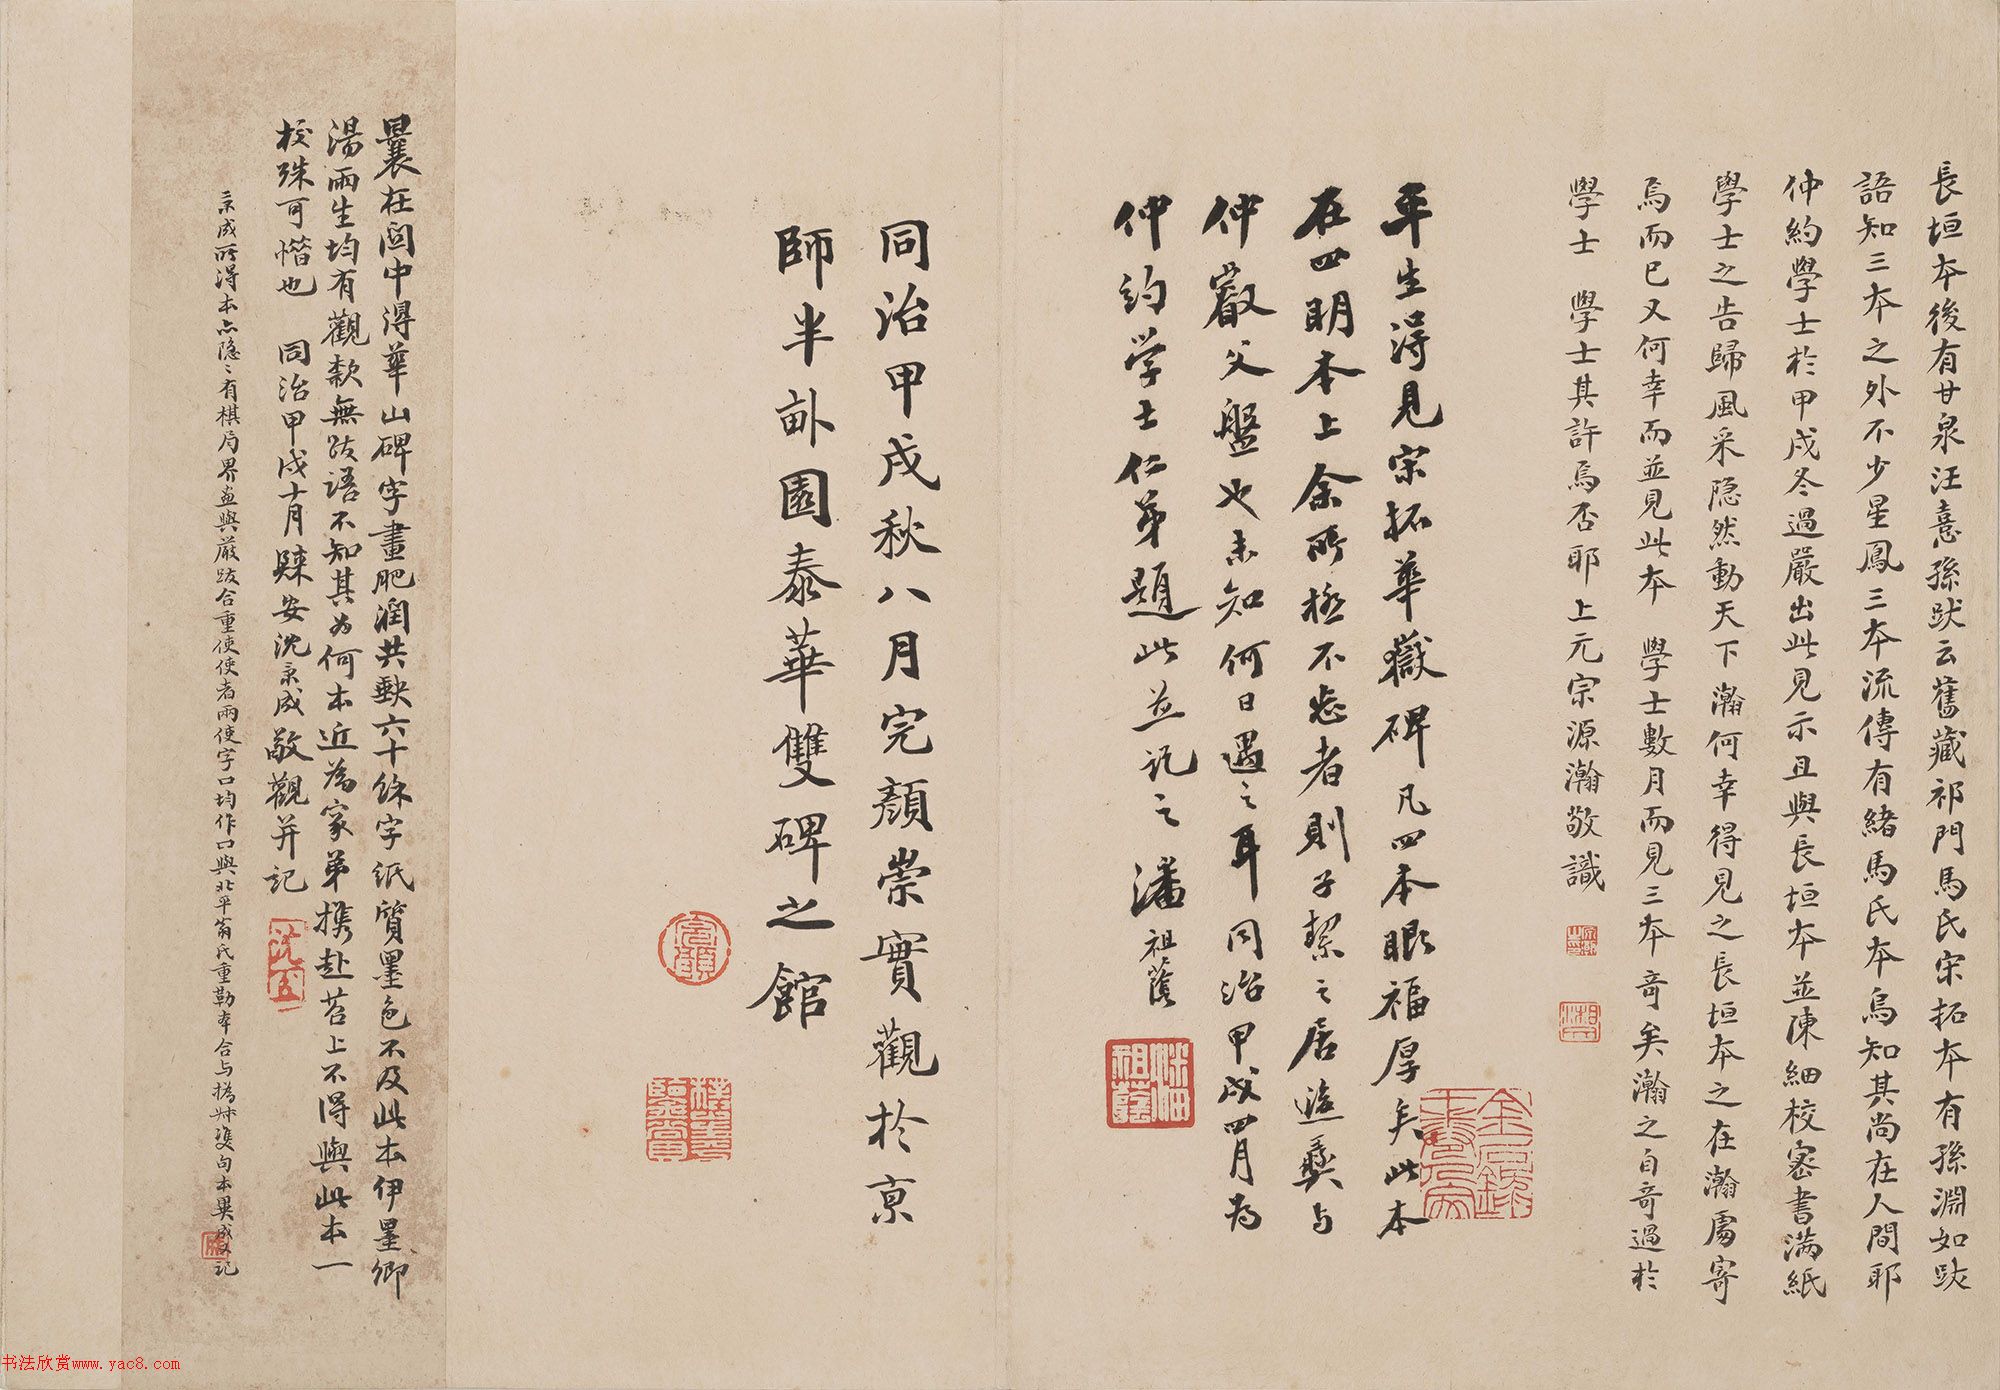 長垣本後有甘泉汪憙孫跋云舊藏祁門馬氏宋拓本有孫淵如跋
語知三本之外不少星鳳三本流傳有緒馬氏本烏知其尚在人間耶
仲約學士於甲戌冬過嚴出此見示且與長垣本並陳細校密書滿紙
學士之告歸風采隐然動天下瀚何幸得見之長垣本之在瀚處寄
焉而已又何幸而並見此本 學士數月而見三本奇矣瀚之自奇過於
學士 學士其許焉否耶 上元宗源瀚敬識
平生得見宗拓華嶽碑凡四本眼福厚矣此本
在四明本上余所極不忘者則子絜之居遊彝与
仲嚴父盤也未知何日遇之耳同治甲戌四月為
仲約学士仁弟題此並記之 潘祖蔭
同治甲戌秋八月完顏崇實觀於京
師半畝園泰華雙碑之館
曩在閩中得華山碑字畫肥潤共缺六十餘字紙質墨色不及此本伊墨卿
湯雨生均有觀款無跋語不知其为何本近為家弟携赴苕上不得與此本一
校殊可惜也 同治甲戌十月歸安沈秉成敬觀并記
秉成所得本亦隐〻有棋局界畫與嚴跋合重使使者兩使字口均作口與北平翁氏重勒本合与撝叔雙勾本異成又記
书法欣赏www.yac8.com